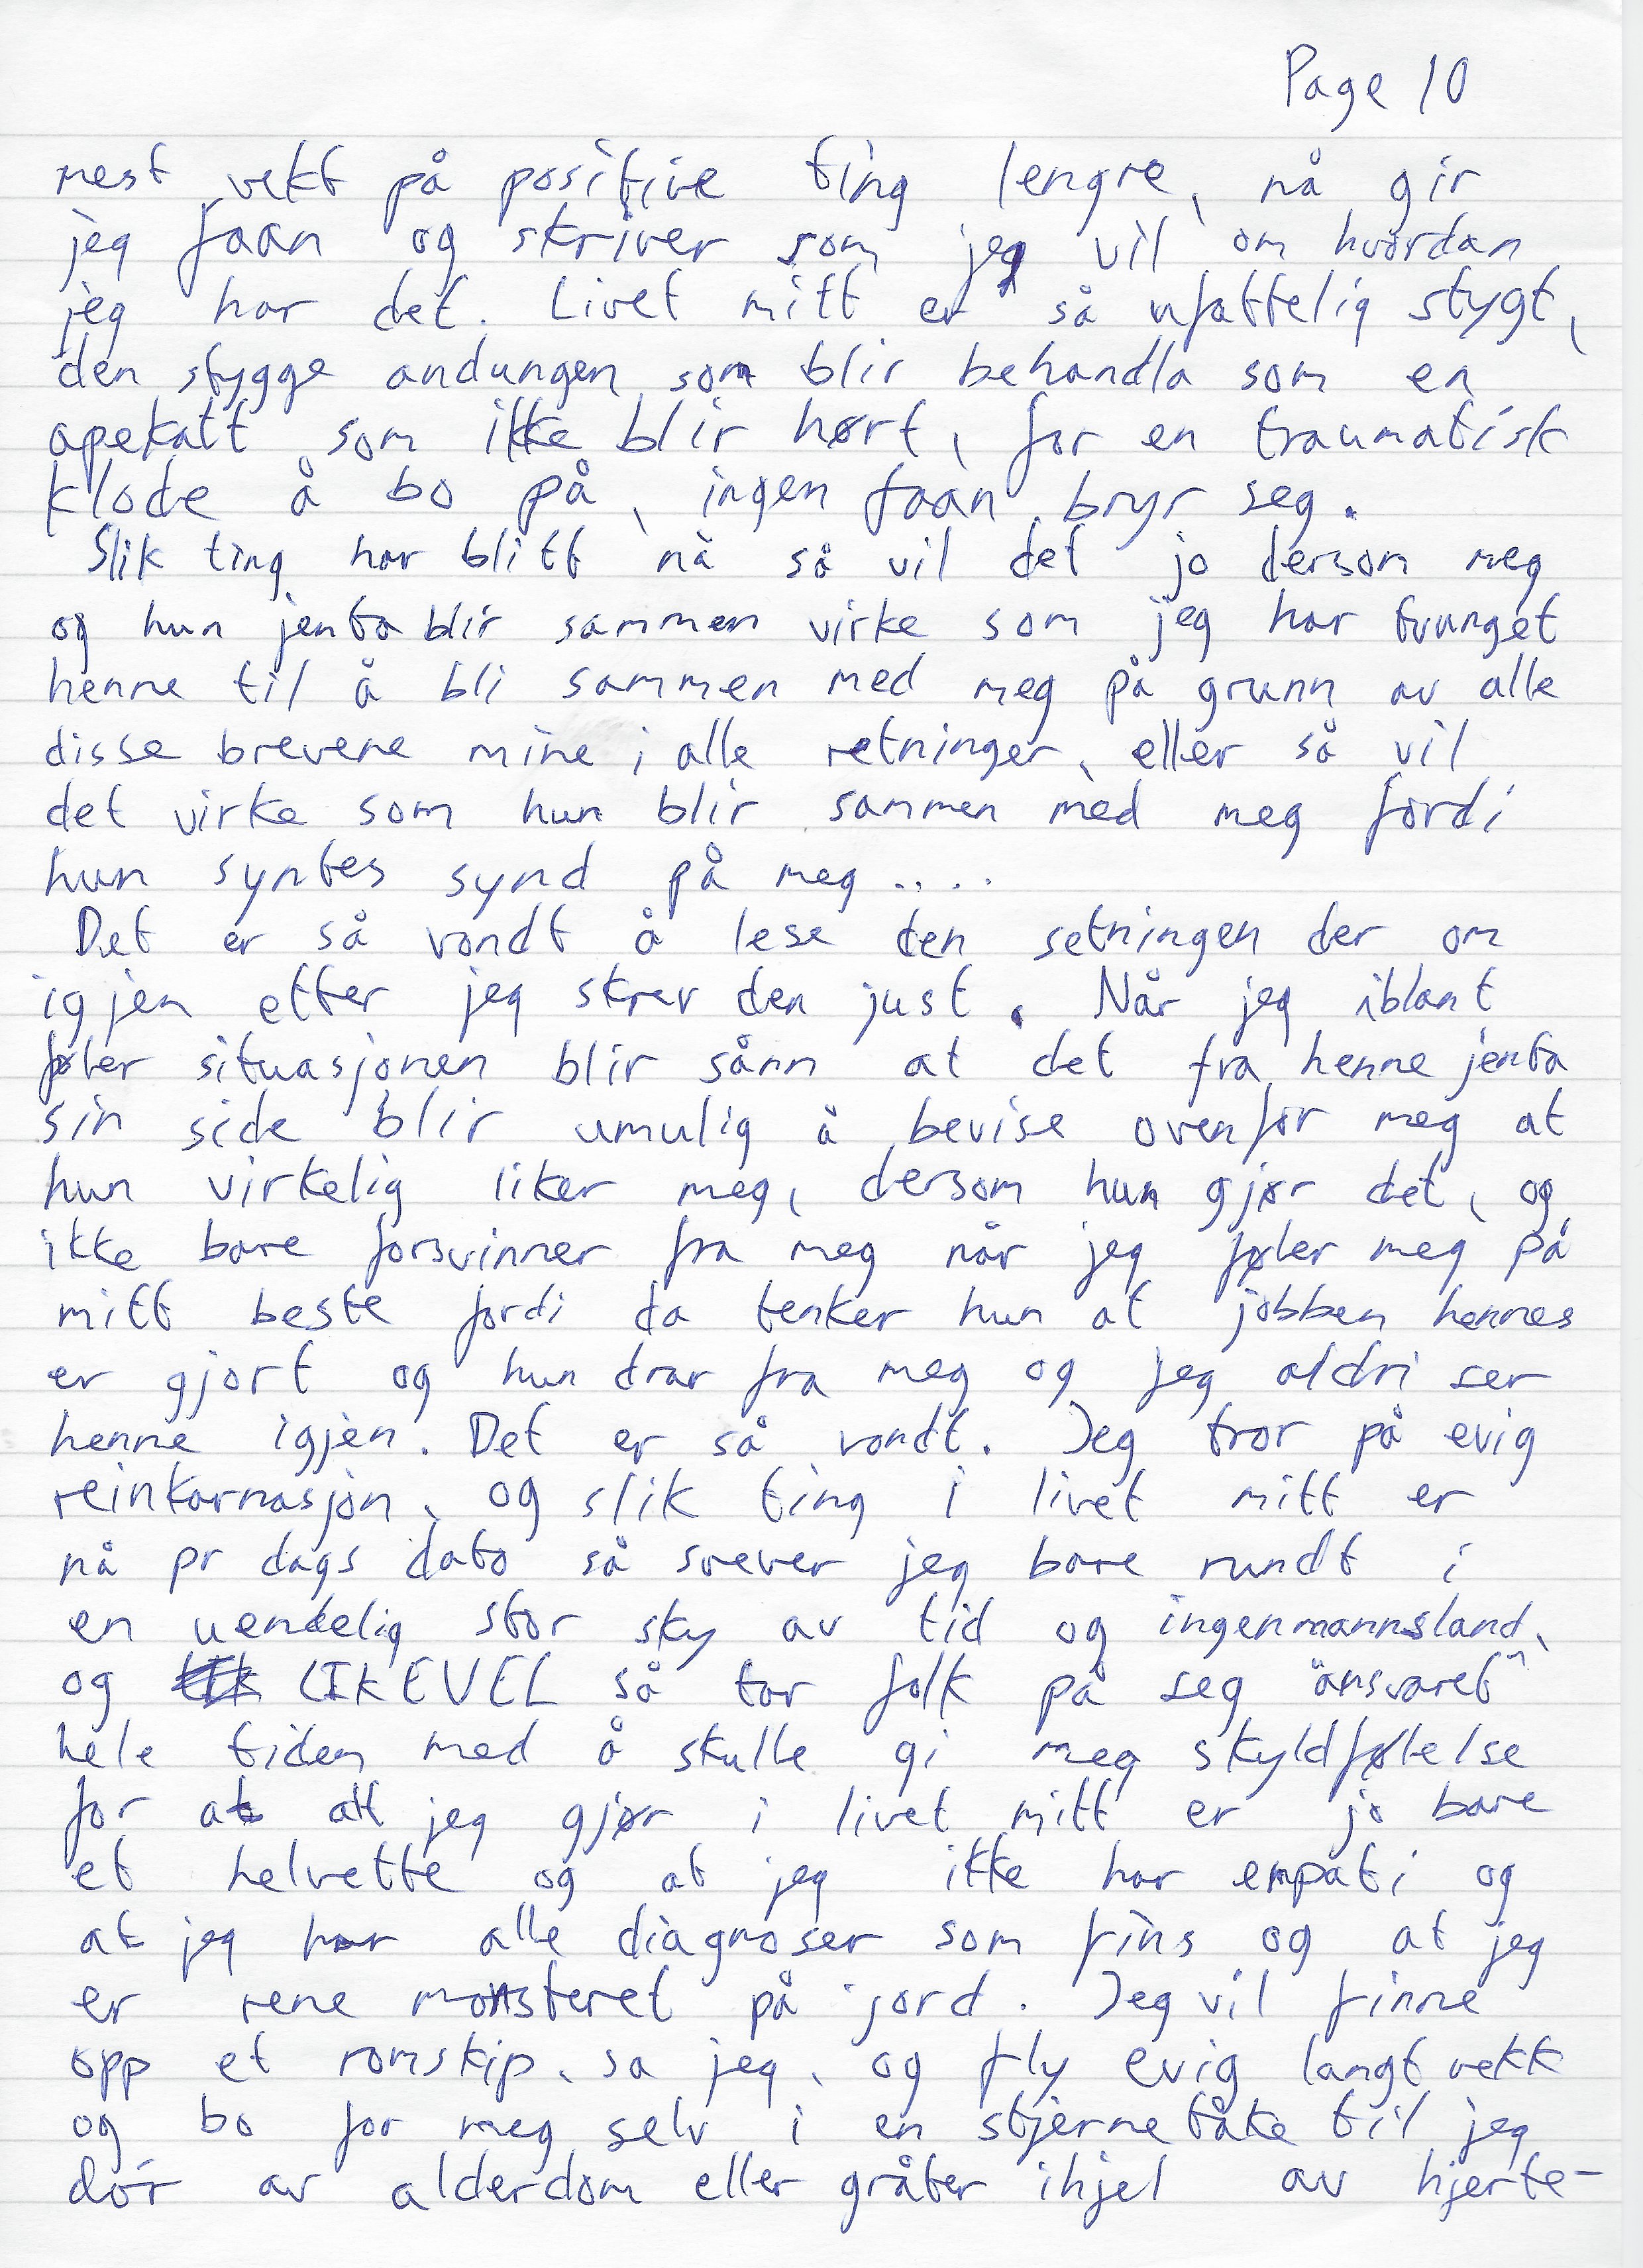 Page 10
mest vekt på positive ting lengre, nå gir
jeg faan og skriver som jeg vil om hvordan
jeg har det. Livet mitt er så ufattelig stygt,
den stygge andungen som blir behandla som en
apekatt som ikke blir hørt, for en traumatisk
klode å bo på, ingen faan bryr seg.
Slik ting har blitt nå så vil det jo dersom meg
og hun jenta blir sammen virke som jeg har tvunget
henne til å bli sammen med meg på grunn av alle
disse brevene mine i alle retninger, eller så vil
det virke som hun blir sammen med meg fordi
hun syntes synd på meg....
Det er så vondt å lese den setningen der om
igjen etter jeg skrev den just. Når jeg iblant
føler situasjonen blir sånn at det fra henne jenta
sin side blir umulig å bevise ovenfor meg at
hun virkelig liker meg, dersom hun gjør det, og
ikke bare forsvinner fra meg når jeg føler meg på
mitt beste fordi da tenker hun at jobben hennes
er gjort og hun drar fra meg og jeg aldri ser
henne igjen. Det er så vondt. Jeg tror på evig
reinkarnasjon, og slik ting i livet mitt er
nå pr dags dato så svever jeg bare rundt i
en uendelig stor sky av tid og ingenmannsland,
og LIKEVEL så tar folk på seg "ansvaret"
hele tiden med å skulle gi meg skyldfølelse
for at alt jeg gjør i livet mitt er jo bare
et helvette og at jeg ikke har empati og
at jeg har alle diagnoser som fins og at jeg
er rene monsteret på jord. Jeg vil finne
opp et romskip, sa jeg, og fly evig langt vekk
og bo for meg selv i en stjernetåke til jeg
dør av alderdom eller gråter ihjel av hjerte-